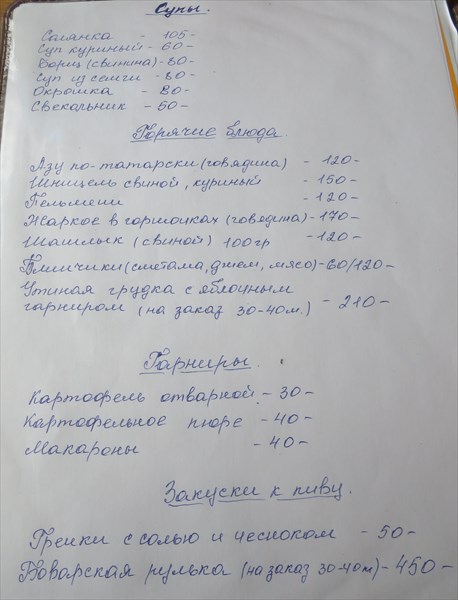 Супы.
Солянка - 105-
Суп куриный - 60-
Борщ (свинина) - 80-
Суп из семги - 80-
Окрошка - 80-
Свекальник - 50-
Горячие блюда
Азу по-татарски (говядина) - 120-
Шницель свиной, куриный - 150-
Пельмени - 120-
Жаркое в горшочках (говядина) - 170-
Шашлык (свиной) 100гр - 120-
Блинчики (сметана, джем, мясо) - 60/120-
Утиная грудка с яблочным
гарниром (на заказ 30-40м.) - 210-
Гарниры.
Картофель отварной - 30-
Картофельное пюре - 40-
Макароны - 40-
Закуски к пиву.
Гренки с солью и чесноком - 50-
Боварская рулька (на заказ 30-40м) - 450-